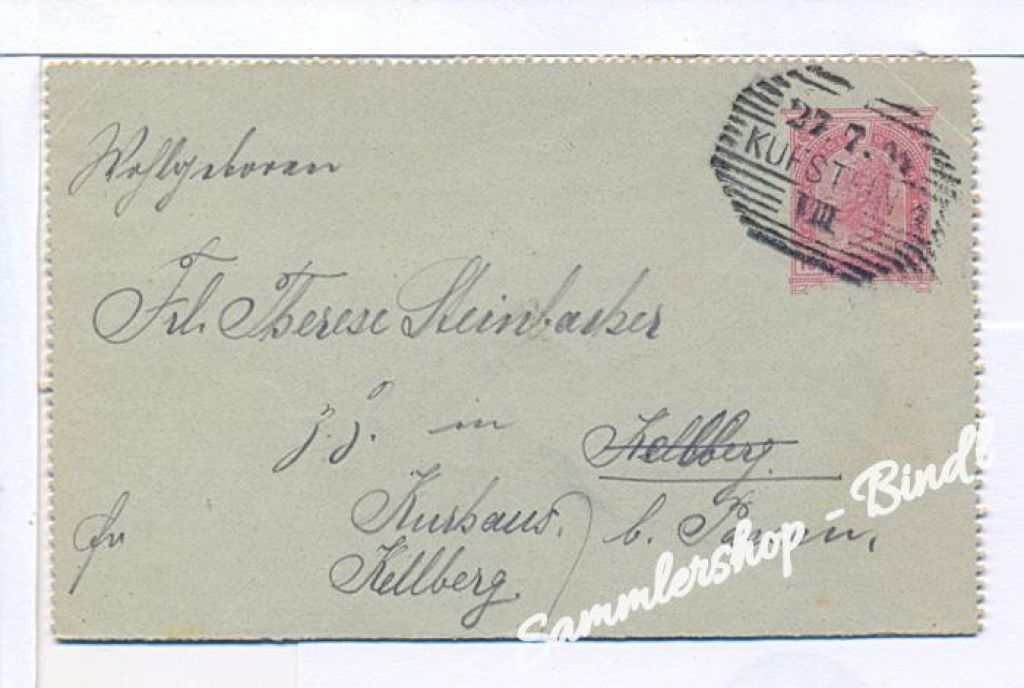 27. 7.
KUFSTEIN
VIII
Wohlgeboren
Frl. Therese Steinbacher
z. Z. in Kellberg.
Kurhaus, b. Passau,
Kellberg.
Sammlershop - Bindl